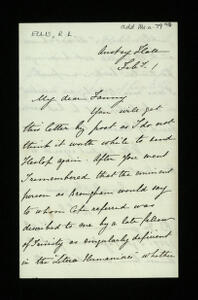 ELLIS, R. L.
Add Ms. a. 79
Anstey Hall
Feb. 1
My dear Fanny
You will get
this letter by post as I do not
think it worth while to send
Heslop again. After you went
I remembered that the eminent
person as Brougham would say
to whom refused was
described to me by a late fellow
of Trinity as singularly deficient
in the "Literæ Humaniores" whether